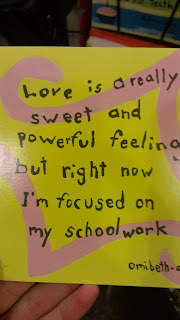 Love is a really
sweet and
powerful feeling
but right now
I'm focused on
my schoolwork